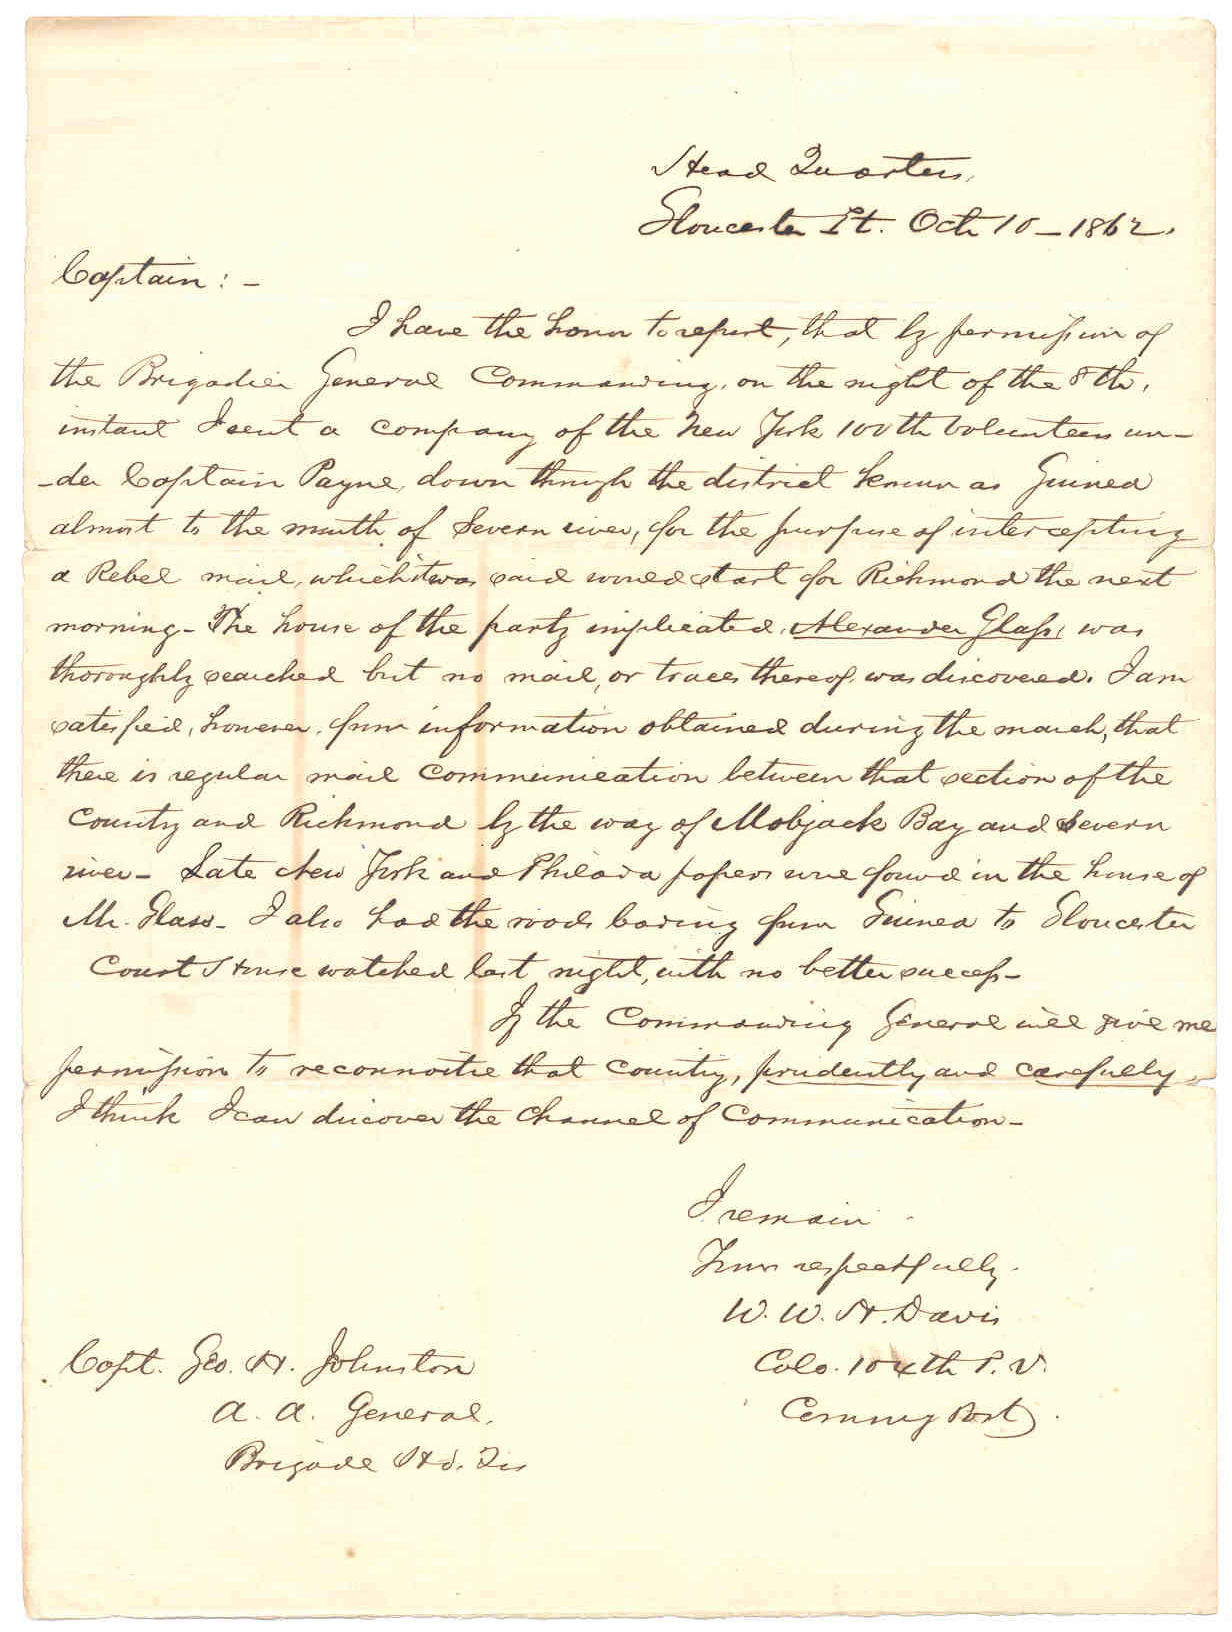 Head Quarters,
Gloucester Pt. Oct 10 - 1862.
Captain : -
I have the honor to report, that by permission of
the Brigadier General Commanding, on the night of the 8th,
instant I sent a company of the New York 100th Volunteers un-
-der Captain Payne, down through the district known as Guinea
almost to the mouth of Severn river, for the purpose of intercepting
a Rebel mail, which it was said would start for Richmond the next
morning - The house of the party implicated, Alexander Glass, was
thoroughly searched but no mail, or traces thereof, was discovered. I am
satisfied, however, from information obtained during the march, that
there is regular mail communication between that section of the
country and Richmond by the way of Mobjack Bay and Severn
river - Late New York and Philada papers were found in the house of
Mr. Glass - I also had the roads leading from Guinea to Gloucester
Court House watched last night, with no better success -
If the Commanding General will give me
permission to reconnoitre that country, prudently and carefully,
I think I can discover the channel of communication -
I remain
Your respectfully.
W. W. H. Davis
Colo. 104th P. V.
Commg Post
Capt. Geo. H. Johnston
A. A. General,
Brigade Hd. Qrs